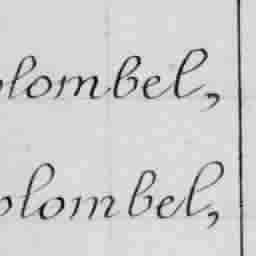 olombel,
olombel,